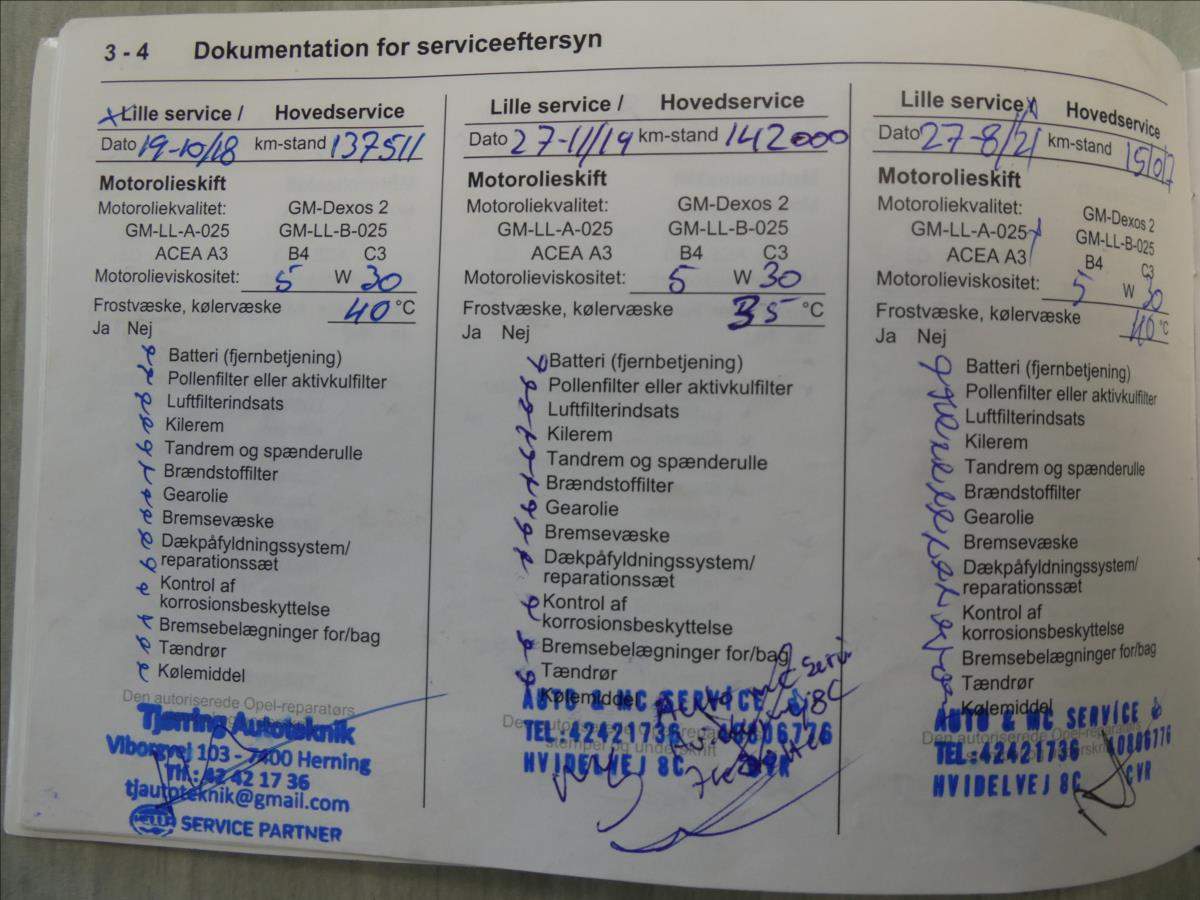 3 - 4 Dokumentation for serviceeftersyn
xLille service / Hovedservice
Dato 19-10/18 km-stand 137511
Motorolieskift
Motoroliekvalitet: GM-Dexos 2
GM-LL-A-025 GM-LL-B-025
ACEA A3 B4 C3
Motorolieviskositet: 5 W 30
Frostvæske, kølervæske 40 °C
Ja Nej
Batteri (fjernbetjening)
Pollenfilter eller aktivkulfilter
Luftfilterindsats
Kilerem
Tandrem og spænderulle
Brændstoffilter
Gearolie
Bremsevæske
Dækpåfyldningssystem/
reparationssæt
Kontrol af
korrosionsbeskyttelse
Bremsebelægninger for/bag
Tændrør
Kølemiddel
Den autoriserede Opel-reparatørs
Tjørring Autoteknik
Viborgvej 103 - 7400 Herning
Tlf.: 42 42 17 36
tjautoteknik@gmail.com
HELLA SERVICE PARTNER
Lille service / Hovedservice
Dato 27-11/19 km-stand 142000
Motorolieskift
Motoroliekvalitet: GM-Dexos 2
GM-LL-A-025 GM-LL-B-025
ACEA A3 B4 C3
Motorolieviskositet: 5 W 30
Frostvæske, kølervæske 35 °C
Ja Nej
Batteri (fjernbetjening)
Pollenfilter eller aktivkulfilter
Luftfilterindsats
Kilerem
Tandrem og spænderulle
Brændstoffilter
Gearolie
Bremsevæske
Dækpåfyldningssystem/
reparationssæt
Kontrol af
korrosionsbeskyttelse
Bremsebelægninger for/bag
Tændrør
Kølemiddel
AUTO & MC SERVICE
TEL:42421736 40806776
stempel og underskrift
HVIDELVEJ 8C CVR
Lille service x Hovedservice
Dato 27-8/21 km-stand
Motorolieskift
Motoroliekvalitet: GM-Dexos 2
GM-LL-A-025 x GM-LL-B-025
ACEA A3 B4 C3
Motorolieviskositet: 5 W 30
Frostvæske, kølervæske 40 °C
Ja Nej
Batteri (fjernbetjening)
Pollenfilter eller aktivkulfilter
Luftfilterindsats
Kilerem
Tandrem og spænderulle
Brændstoffilter
Gearolie
Bremsevæske
Dækpåfyldningssystem/
reparationssæt
Kontrol af
korrosionsbeskyttelse
Bremsebelægninger for/bag
Tændrør
Kølemiddel
Den autoriserede Opel-reparatørs
AUTO & MC SERVICE
TEL:42421736 40806776
HVIDELVEJ 8C CVR